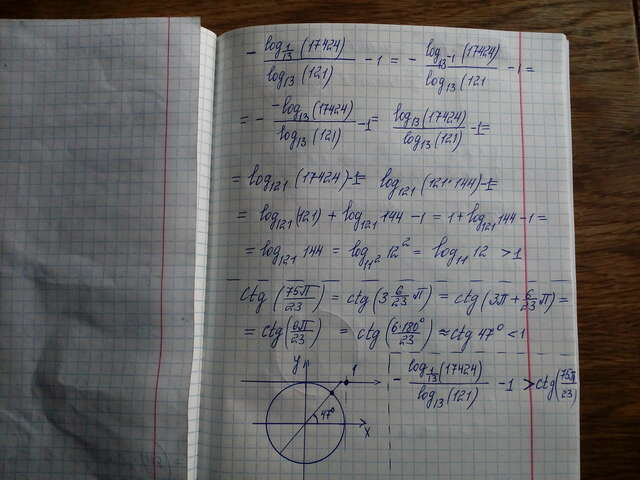 - log_{1/13}(17424) / log_{13}(121) - 1 = - log_{13^{-1}}(17424) / log_{13}(121 - 1 =
= - -log_{13}(17424) / log_{13}(121) - 1 = log_{13}(17424) / log_{13}(121) - 1 =
= log_{121}(17424) - 1 = log_{121}(121·144) - 1 =
= log_{121}(121) + log_{121} 144 - 1 = 1 + log_{121} 144 - 1 =
= log_{121} 144 = log_{11^2} 12^2 = log_{11} 12 > 1
ctg(75π/23) = ctg(3 6/23 π) = ctg(3π + 6/23 π) =
= ctg(6π/23) = ctg(6·180°/23) ≈ ctg 47° < 1
y 1
- log_{1/13}(17424) / log_{13}(121) - 1 > ctg(75π/23)
47°
x